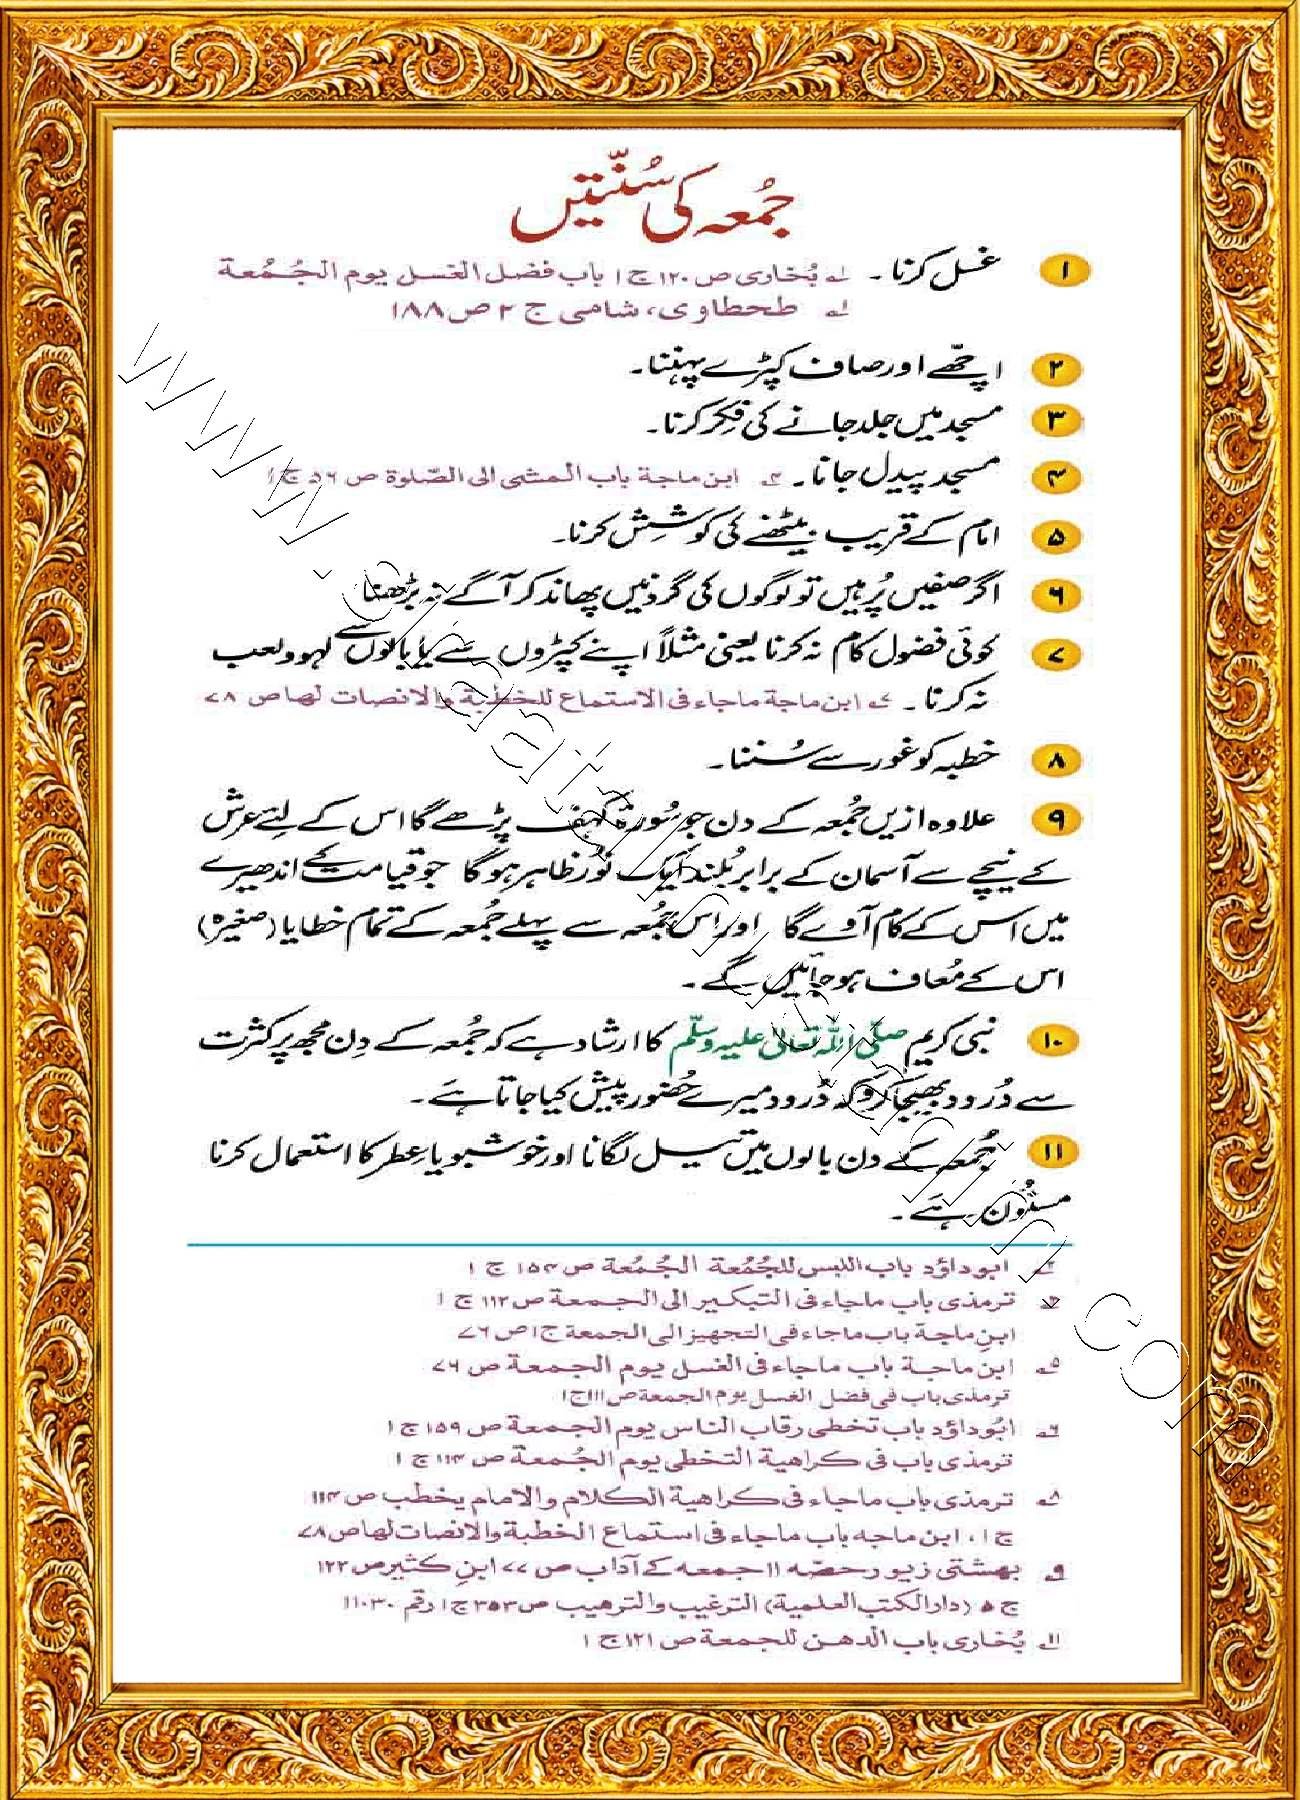 جُمعہ کی سُنّتیں
۱ غسل کرنا۔ ۱؎ بُخاری ص ۱۲۰ ج ۱ باب فضل الغسل یوم الجُمُعة
۱؎ طحطاوی، شامی ج ۲ ص ۱۸۸
۲ اچھّے اور صاف کپڑے پہننا۔
۳ مسجد میں جلد جانے کی فِکر کرنا۔
۴ مسجد پیدل جانا۔ ۴؎ ابن ماجة باب المشی الی الصّلوة ص ۵۶ ج ۱
۵ امام کے قریب بیٹھنے کی کوشِش کرنا۔
۶ اگر صفیں پُر ہیں تو لوگوں کی گردنیں پھاند کر آگے نہ بڑھنا
۷ کوئی فضول کام نہ کرنا یعنی مثلاً اپنے کپڑوں سے یا بالوں سے لہو ولعب
نہ کرنا۔ ۷؎ ابن ماجة ماجاء فی الاستماع للخطبة والانصات لها ص ۷۸
۸ خطبہ کو غور سے سُننا۔
۹ علاوہ ازیں جُمعہ کے دن جو سُورۃ کہف پڑھے گا اس کے لِئے عرش
کے نیچے سے آسمان کے برابر بُلند ایک نُور ظاہر ہوگا جو قیامت کے اندھیرے
میں اس کے کام آوے گا اور اس جُمعہ سے پہلے جُمعہ کے تمام خطایا (صغیرہ)
اس کے مُعاف ہو جائیں گے۔
۱۰ نبی کریم صلّی اللہ تعالیٰ علیہ وسلّم کا ارشاد ہے کہ جُمعہ کے دِن مجھ پر کثرت
سے دُرود بھیجا کرو کہ دُرود میرے حُضور پیش کیا جاتا ہے۔
۱۱ جُمعہ کے دن بالوں میں تیل لگانا اور خوشبو یا عِطر کا استعمال کرنا
مسنُون ہے۔
۲؎ ابوداؤد باب اللبس للجُمُعة الجُمُعة ص ۱۵۴ ج ۱
۳؎ ترمذی باب ماجاء فی التبکیر الی الجمعة ص ۱۱۲ ج ۱
ابنِ ماجة باب ماجاء فی التجهیز الی الجمعة ج ۱ ص ۷۶
۵؎ ابن ماجة باب ماجاء فی الغسل یوم الجمعة ص ۷۶
ترمذی باب فی فضل الغسل یوم الجمعة ص ۱۱۱ ج ۱
۶؎ ابُوداؤد باب تخطی رقاب الناس یوم الجمعة ص ۱۵۹ ج ۱
ترمذی باب فی کراهیة التخطی یوم الجُمعة ص ۱۱۴ ج ۱
۸؎ ترمذی باب ماجاء فی کراهیة الکلام والامام یخطب ص ۱۱۴
ج ۱، ابن ماجه باب ماجاء فی استماع الخطبة والانصات لها ص ۷۸
۹؎ بهشتی زیور حصّه ۱۱ جمعه کے آداب ص ۷۷ ابنِ کثیر ص ۱۲۲
ج ۵ (دار الکتب العلمیة) الترغیب والترهیب ص ۳۵۳ ج ۱ رقم ۱۱۰۳۰
۱۱؎ بُخاری باب الدهن للجمعة ص ۱۲۱ ج ۱